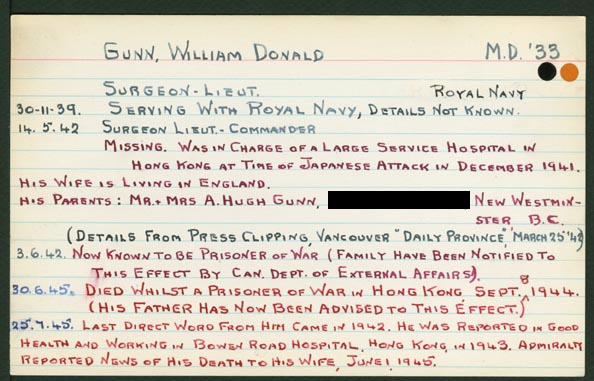 GUNN, WILLIAM DONALD M.D. '33
SURGEON-LIEUT. ROYAL NAVY
30-11-39. SERVING WITH ROYAL NAVY, DETAILS NOT KNOWN.
14.5.42 SURGEON LIEUT.-COMMANDER
MISSING. WAS IN CHARGE OF A LARGE SERVICE HOSPITAL IN
HONG KONG AT TIME OF JAPANESE ATTACK IN DECEMBER 1941.
HIS WIFE IS LIVING IN ENGLAND.
HIS PARENTS: MR. + MRS A. HUGH GUNN, NEW WESTMIN-
STER B.C.
(DETAILS FROM PRESS CLIPPING, VANCOUVER "DAILY PROVINCE" MARCH 25TH '42)
3.6.42. NOW KNOWN TO BE PRISONER OF WAR (FAMILY HAVE BEEN NOTIFIED TO
THIS EFFECT BY CAN. DEPT. OF EXTERNAL AFFAIRS).
30.6.45. DIED WHILST A PRISONER OF WAR IN HONG KONG SEPT. 8 1944.
(HIS FATHER HAS NOW BEEN ADVISED TO THIS EFFECT.)
25.7.45. LAST DIRECT WORD FROM HIM CAME IN 1942. HE WAS REPORTED IN GOOD
HEALTH AND WORKING IN BOWEN ROAD HOSPITAL, HONG KONG, IN 1943. ADMIRALTY
REPORTED NEWS OF HIS DEATH TO HIS WIFE, JUNE 1, 1945.